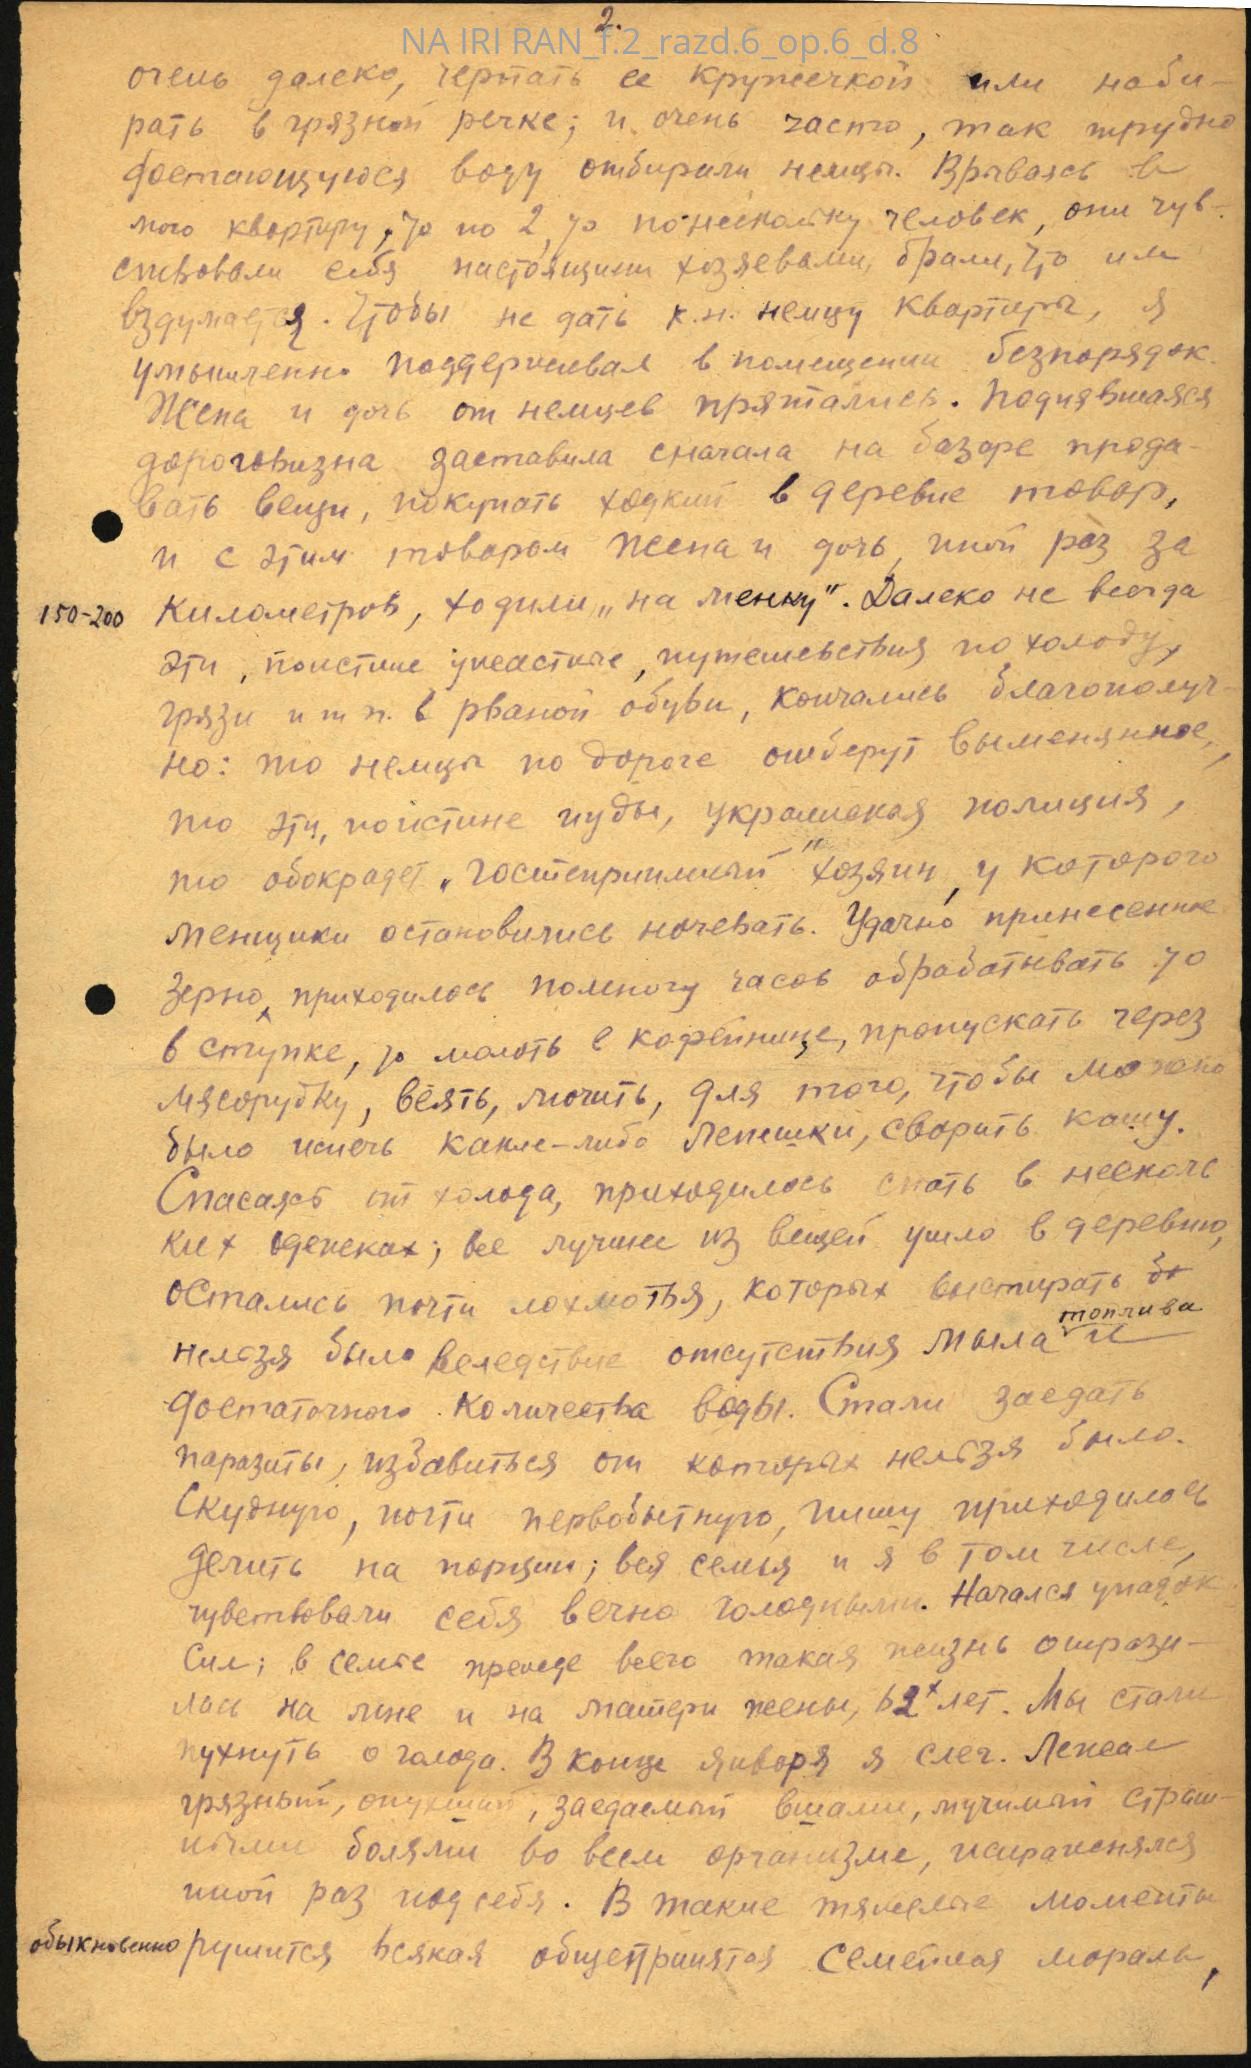 2.
NA IRI RAN_f.2_razd.6_op.6_d.8
очень далеко, черпать ее кружечкой или наби-
рать в грязной речке; и очень часто, так трудно
достающуюся воду отбирали немцы. Врываясь в
мою квартиру, то по 2, то по несколку человек, они чув-
ствовали себя настоящими хозяевами, брали, что им
вздумается. Чтобы не дать к.н. немцу квартиры, я
умышленно поддерживал в помещении безпорядок.
Жена и дочь от немцев прятались. Поднявшаяся
дороговизна заставила сначала на базаре прода-
вать вещи, покупать ходкий в деревне товар,
и с этим товаром жена и дочь, иной раз за
150-200 километров, ходили „на менку". Далеко не всегда
эти, поистине ужасные, путешествия по холоду,
грязи и т п. в рваной обуви, кончались благополуч-
но: то немцы по дороге отберут вымененное,
то эти, поистине иуды, украинская полиция,
то обокрадет „гостеприимный" хозяин, у которого
менщики остановились ночевать. Удачно принесенное
зерно, приходилось помногу часов обрабатывать то
в ступке, то молоть в кофейнице, пропускать через
мясорубку, веять, мочить, для того, чтобы можно
было испечь какие-либо лепешки, сварить кашу.
Спасаясь от холода, приходилось спать в несколь
ких одежках; все лучшее из вещей ушло в деревню,
остались почти лохмотья, которых выстирать бы
нельзя было вследствие отсутствия мыла топлива и
достаточного количества воды. Стали заедать
паразиты, избавиться от которых нельзя было.
Скудную, почти первобытную, пищу приходилось
делить на порции; вся семья и я в том числе,
чувствовали себя вечно голодными. Начался упадок
сил; в семье прежде всего такая жизнь отрази-
лась на мне и на матери жены, 62х лет. Мы стали
пухнуть о голода. В конце января я слег. Лежал
грязный, опухший, заедаемый вшами, мучимый страш-
ными болями во всем организме, испражнялся
иной раз под себя. В такие тяжелые моменты
обыкновенно рушится всякая общепринятая семейная мораль,